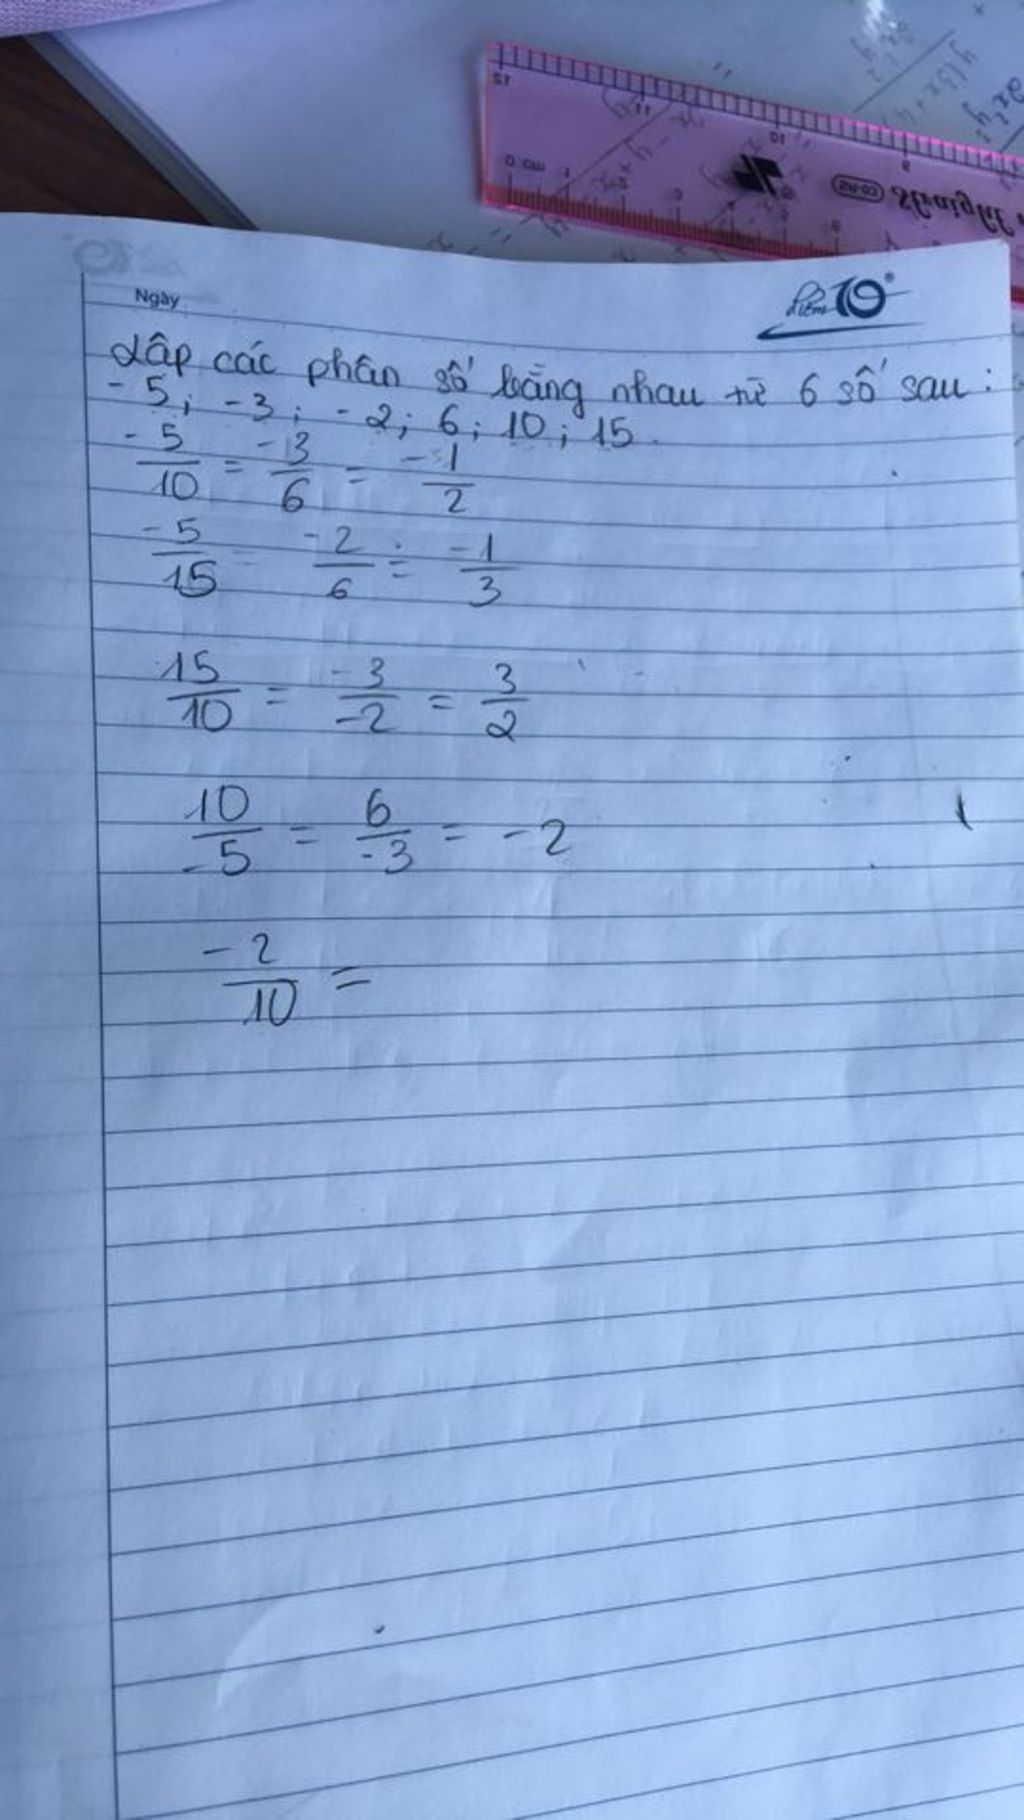 Ngày
điểm 10
Lập các phân số bằng nhau từ 6 số sau:
-5; -3; -2; 6; 10; 15.
-5/10 = -3/6 = -1/2
-5/15 = -2/6 = -1/3
15/10 = -3/-2 = 3/2
10/-5 = 6/-3 = -2
-2/10 =
0 cm 1
12 11 10 9
Straight